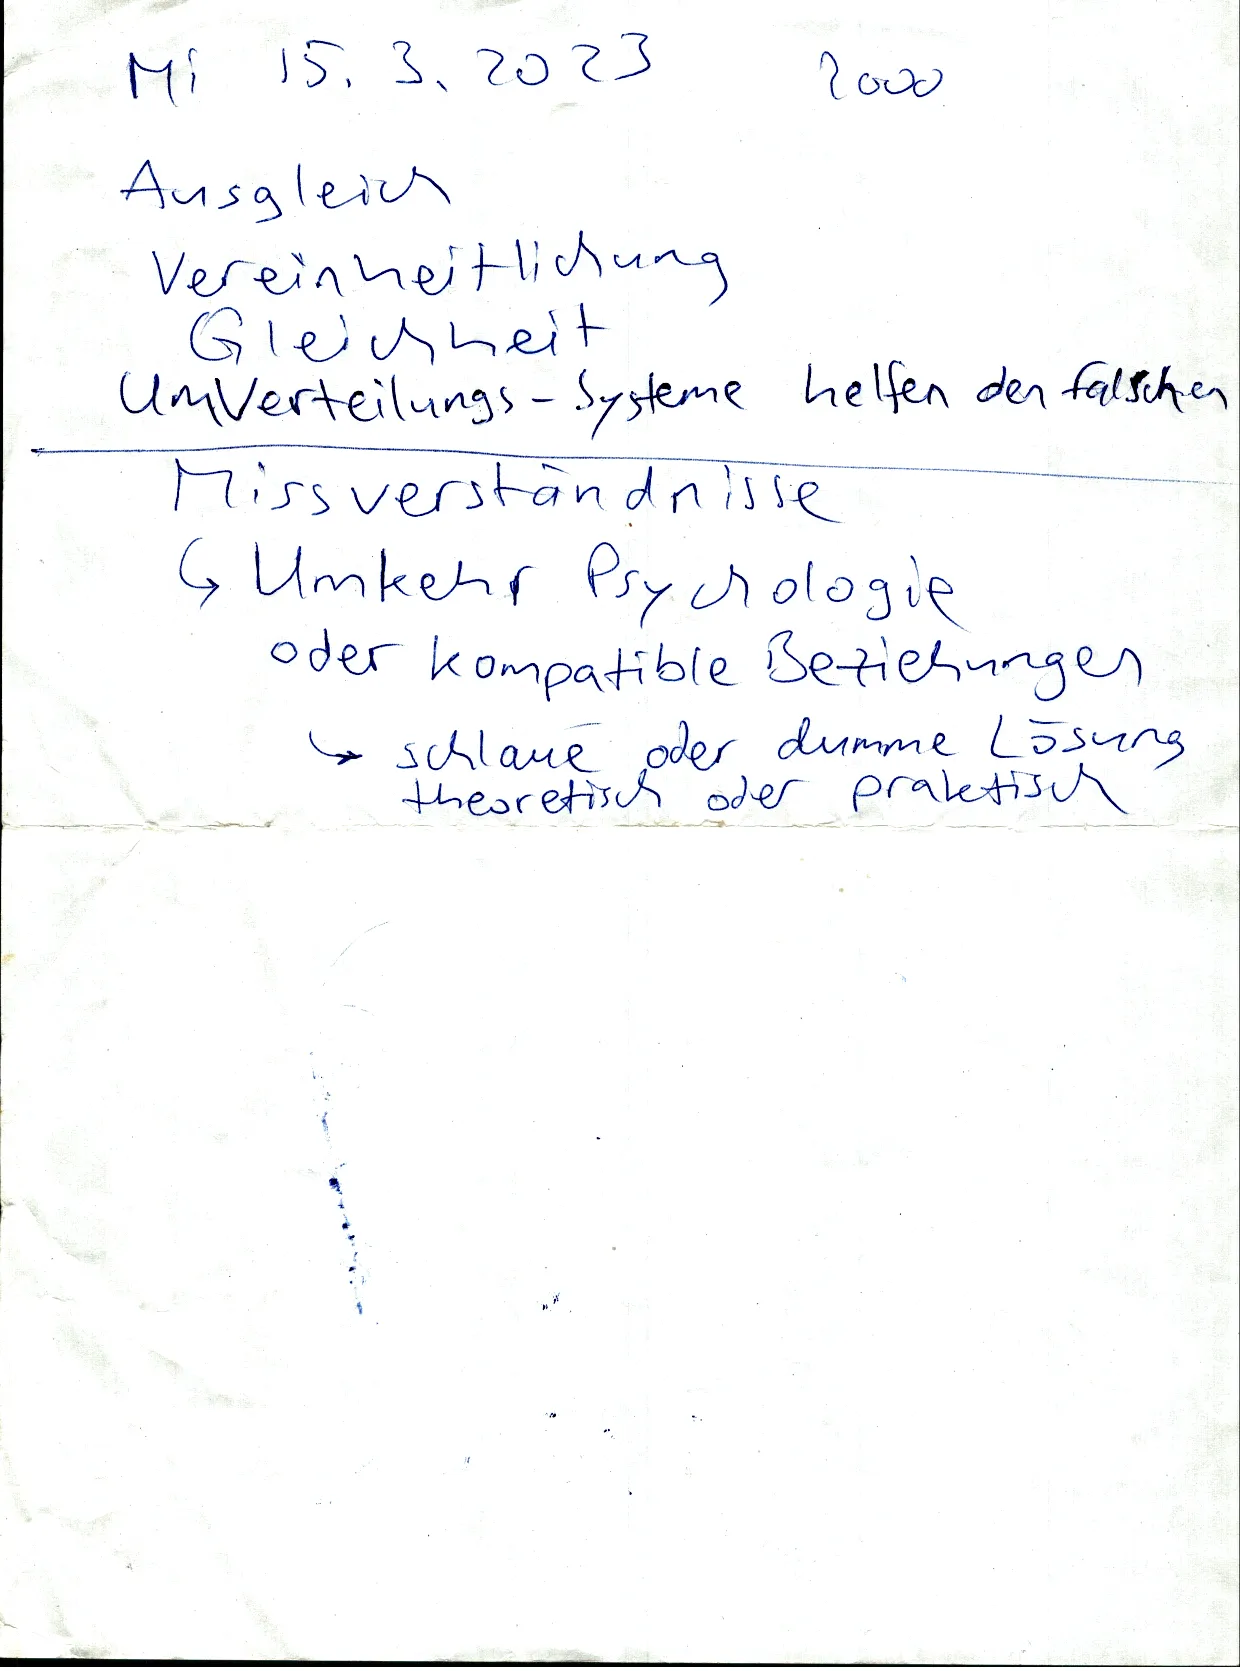 Mi 15. 3. 2023 2000
Ausgleich
Vereinheitlichung
Gleichheit
UmVerteilungs-Systeme helfen den falschen
Missverständnisse
↳ Umkehr Psychologie
oder kompatible Beziehungen
↳ schlaue oder dumme Lösung
theoretisch oder praktisch